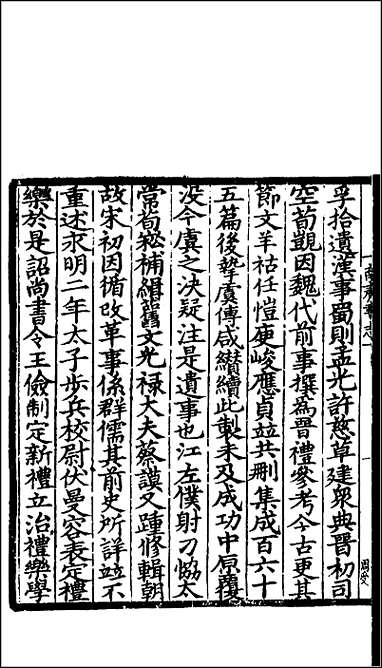 孚拾遺漢事蜀則孟光許慈草建衆典晉初司
空荀顗因魏代前事撰為晉禮參考今古更其
節文羊祜任愷庾峻應貞並共刪集成百六十
五篇後摯虞傅咸纘續此製未及成功中原覆
没今虞之決疑注是遺事也江左僕射刁協太
常荀崧補緝舊文光祿大夫蔡謨又踵修輯朝
故宋初因循改革事係群儒其前史所詳並不
重述永明二年太子步兵校尉伏曼容表定禮
樂於是詔尚書令王儉制定新禮立治禮樂學